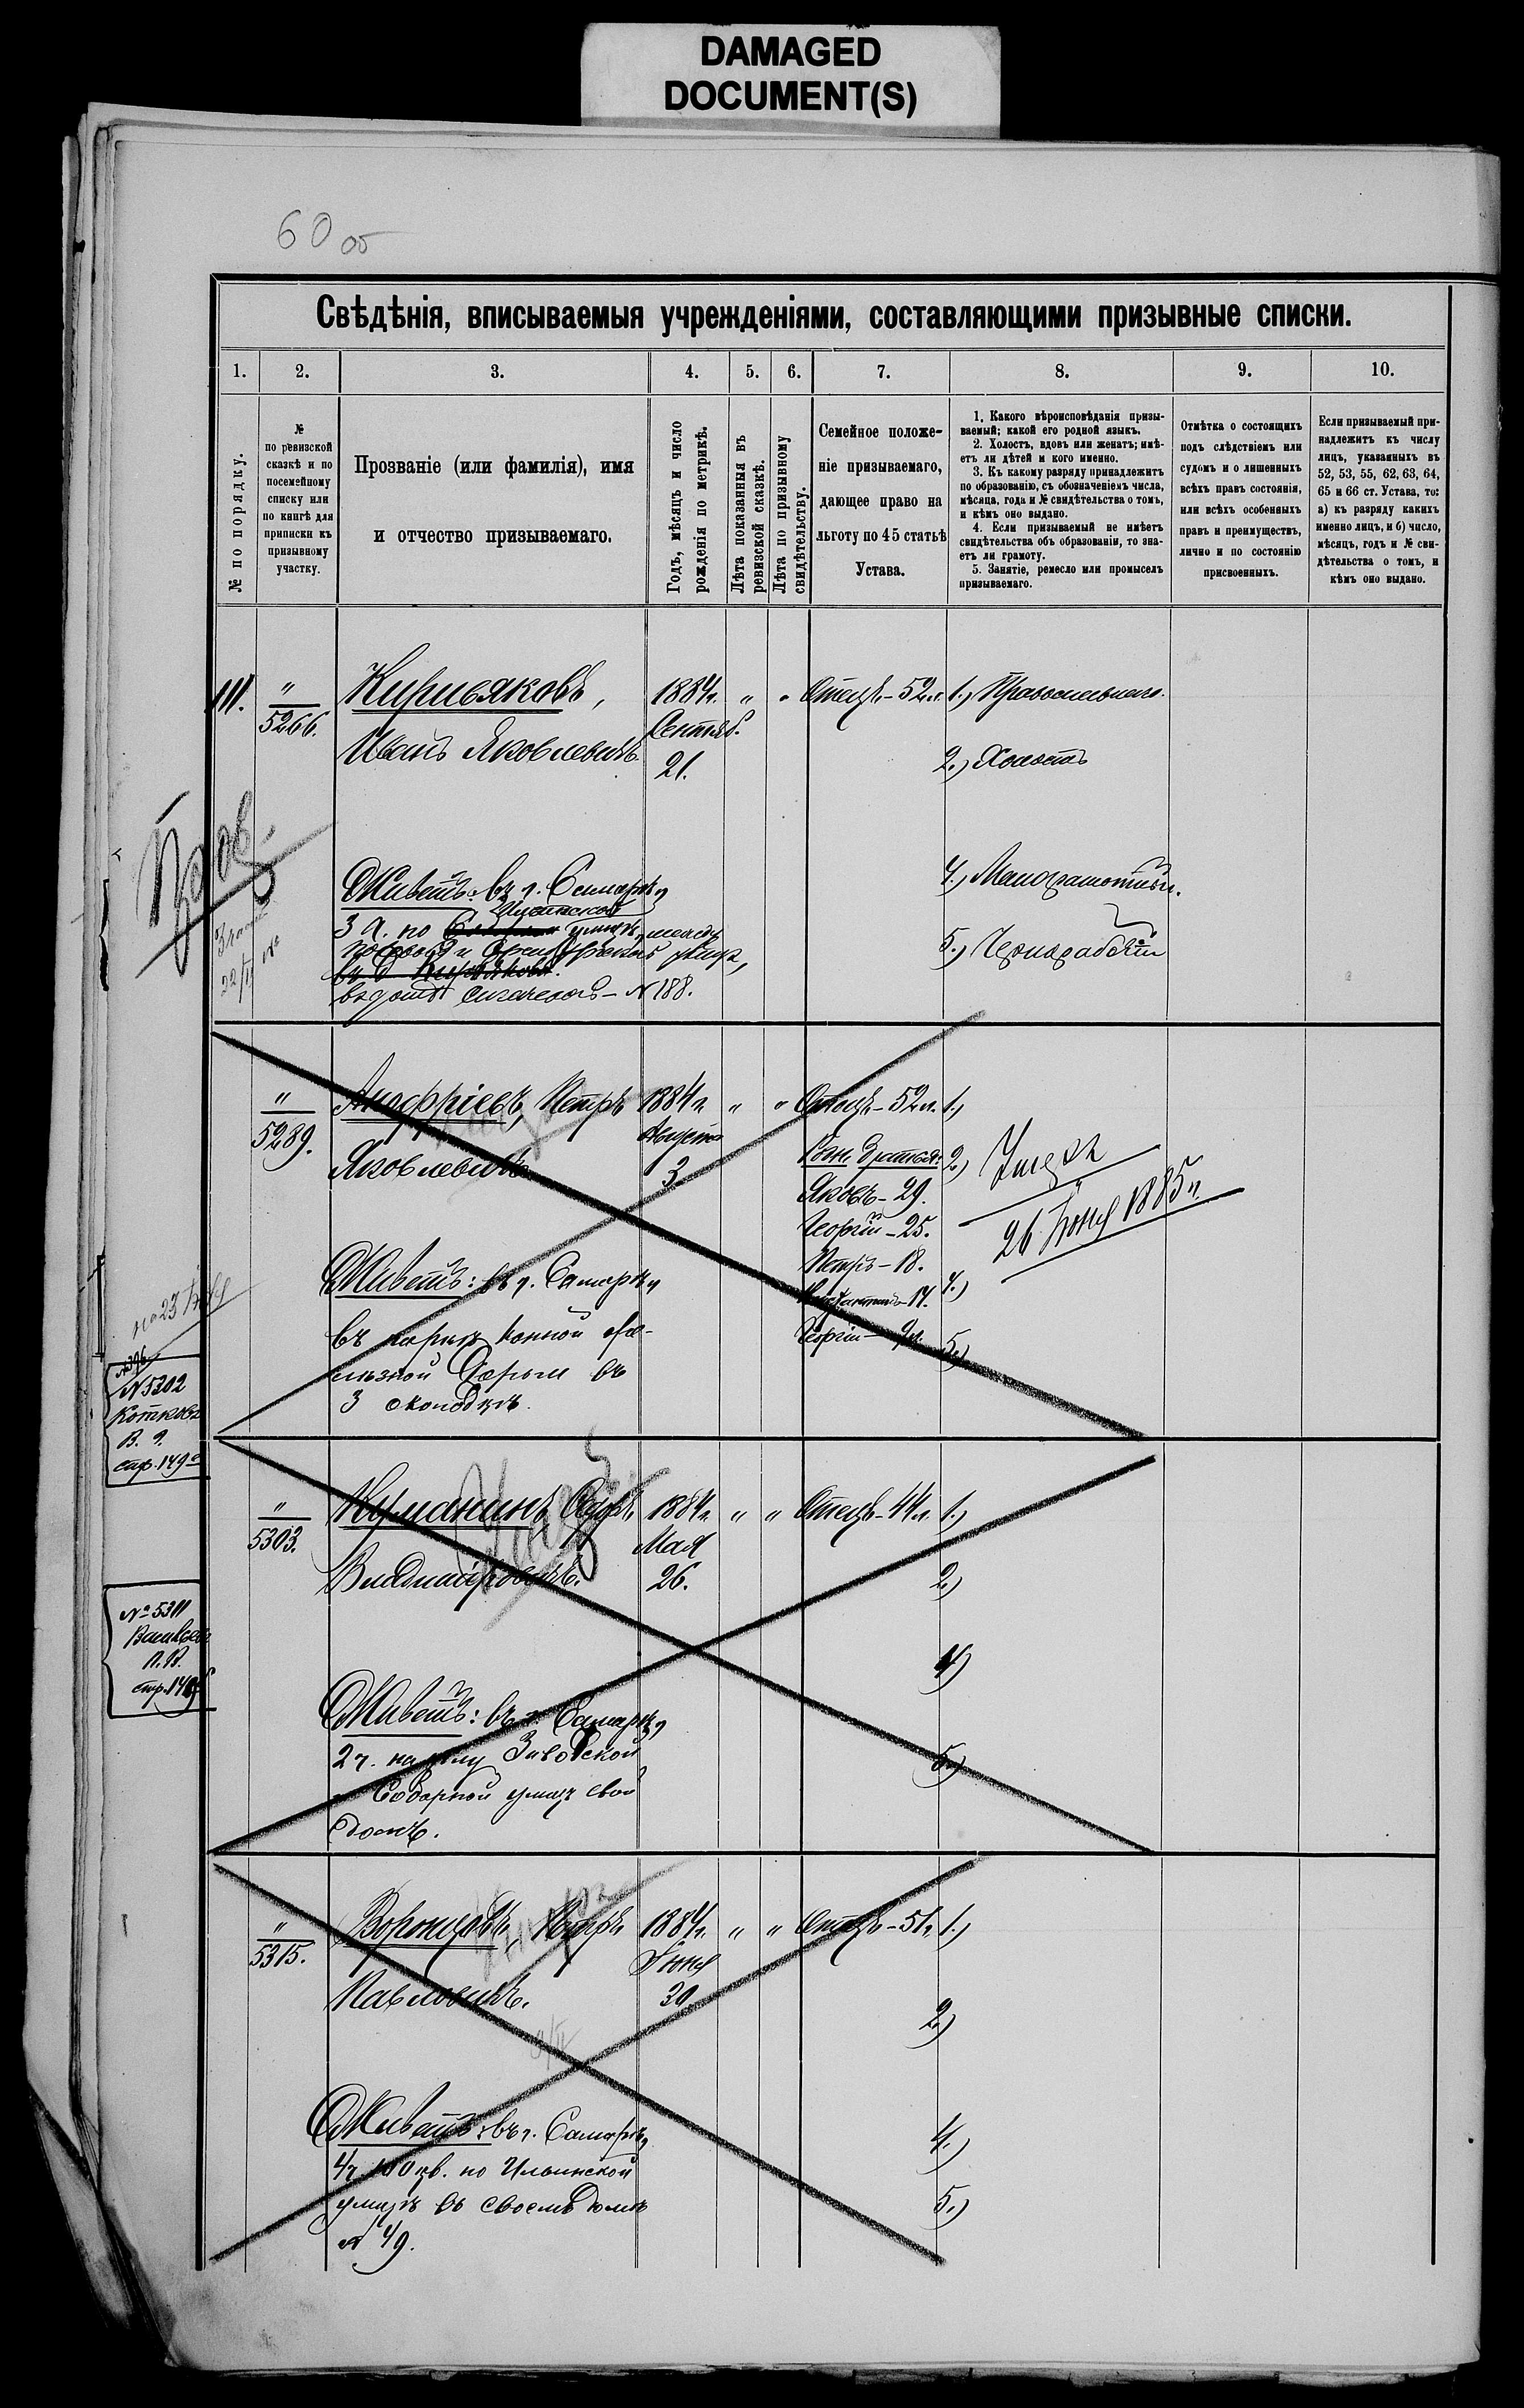 DAMAGED
DOCUMENT(S)
60 об
Свѣдѣнія, вписываемыя учрежденіями, составляющими призывные списки.
1. 2. 3. 4. 5. 6. 7. 8. 9. 10.
№ по порядку.
№
по ревизской
сказкѣ и по
посемейному
списку или
по книгѣ для
приписки къ
призывному
участку.
Прозваніе (или фамилія), имя
и отчество призываемаго.
Годъ, мѣсяцъ и число
рожденія по метрикѣ.
Лѣта показанныя въ
ревизской сказкѣ.
Лѣта по призывному
свидѣтельству.
Семейное положе-
ніе призываемаго,
дающее право на
льготу по 45 статьѣ
Устава.
1. Какого вѣроисповѣданія призы-
ваемый; какой его родной языкъ.
2. Холостъ, вдовъ или женатъ; имѣ-
етъ ли дѣтей и кого именно.
3. Къ какому разряду принадлежитъ
по образованію, съ обозначеніемъ числа,
мѣсяца, года и № свидѣтельства о томъ,
и кѣмъ оно выдано.
4. Если призываемый не имѣетъ
свидѣтельства объ образованіи, то зна-
етъ ли грамоту.
5. Занятіе, ремесло или промыселъ
призываемаго.
Отмѣтка о состоящихъ
подъ слѣдствіемъ или
судомъ и о лишенныхъ
всѣхъ правъ состоянія,
или всѣхъ особенныхъ
правъ и преимуществъ,
лично и по состоянію
присвоенныхъ.
Если призываемый при-
надлежитъ къ числу
лицъ, указанныхъ въ
52, 53, 55, 62, 63, 64,
65 и 66 ст. Устава, то:
а) къ разряду какихъ
именно лицъ, и б) число,
мѣсяцъ, годъ и № сви-
дѣтельства о томъ, и
кѣмъ оно выдано.
111. " Кирьяковъ, 1884г. " " Отецъ - 52 л. 1.) Православнаго.
5266. Сентяб.
Иванъ Яковлевичъ. 21. 2.) Холостъ
Живетъ: въ г. Самарѣ, 4.) Малограмотный.
3 ч. по улицѣ, между
5.) Чернорабочій
въ домѣ № 188.
" Андріевъ, Петръ 1884г. " " Отецъ - 52 л. 1.)
5289. Августа
Яковлевичъ 3. Род. братья: 2.) Умеръ
Яковъ - 29. 26 Іюня 1885 г.
Георгій - 25.
Петръ - 18.
Живетъ: въ г. Самарѣ, Константинъ - 14. 4.)
въ паркѣ конной же- Георгій - 5.)
лѣзной дороги въ
3 околодкѣ.
№ 5302
Котковъ
В. Я.
стр. 149
" Куманинъ, 1884г. " " Отецъ - 44 л. 1.)
5303. Мая
Владиміровичъ. 26. 2.)
№ 5311
Васильевъ
П. В.
4)
Живетъ: въ г. Самарѣ,
2 ч. на углу Заводской 5.)
и Соборной улицъ свой
домъ.
" Воронцовъ, Петръ 1884г. " " Отецъ - 51 г. 1.)
5315. Іюня
Павловичъ. 30. 2.)
Живетъ: въ г. Самарѣ, 4.)
4 ч. 100 кв. по Ильинской
улицѣ въ своемъ домѣ 5.)
№ 49.